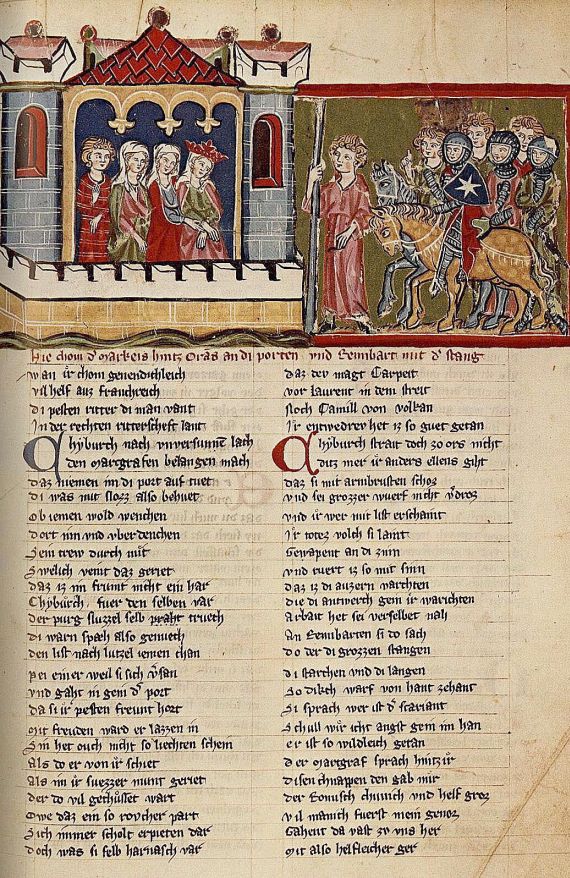 Hie chom d' markeis hintz Oras an di porten vnd Rennbart mit d' stang
wan ir chom genendichleich
vil helf auz franchreich
di pesten riter di man vant
In der rechten riterscheft lant
Chyburch nach vnversunne lach
den margrafen belangen mach
daz niemen im di port auf tuet
di was mit slozz also behuet
Ob iemen wold wenchen
dort inn vnd vberdenchen
Sein trew durch mut
Swelich vemt daz geriet
daz iz im frumt nicht ein har
Chyburch, fuer den selben var
der purg sluzzel selb praht truech
di warn spæh also genuech
den list nach lutzel iemen chan
pei einer weil si sich vsan
vnd gaht in gein d' port
da si ir pesten freunt hort
mit freuden ward er lazzen in
Sin het ouch nicht so liechten schein
Als do er von ir schiet
Als im ir suezzer munt geriet
der do vil gechusset wart
Owe daz ein so roucher part
Sich immer scholt erpieten dar
doch was si selb harnasch var
daz der magt Carpeit
vor laurent in dem streit
Noch Camill von volkan
Ir entwederev het iz so guet getan
Chyburch strait doch zo ors nicht
diz mer ir anders ellens giht
daz si mit armbrusten schoz
vnd sei grozzer wuerf nicht vdroz
vnd ir wer mit list erschaint
Ir totez volch si laint
Gewapent an di zinn
vnd ruert iz so mit sinn
daz iz di auzern vorchten
die di antwerch gein ir worchten
Arbait het sei verselbet nah
An Rennbarten si do sach
do der di grozzen stangen
di starchen vnd di langen
So dikch warf von hant zehant
Si sprach wer ist d' sariant
Schull wir icht angst gein im han
er ist so wildleich getan
der margraf sprach hintz ir
disen chnappen den gab mir
der Romisch chunich vnd helf groz
vil manich fuerst mein genoz
Gahent da vast zv vns her
mit also helfleicher ger